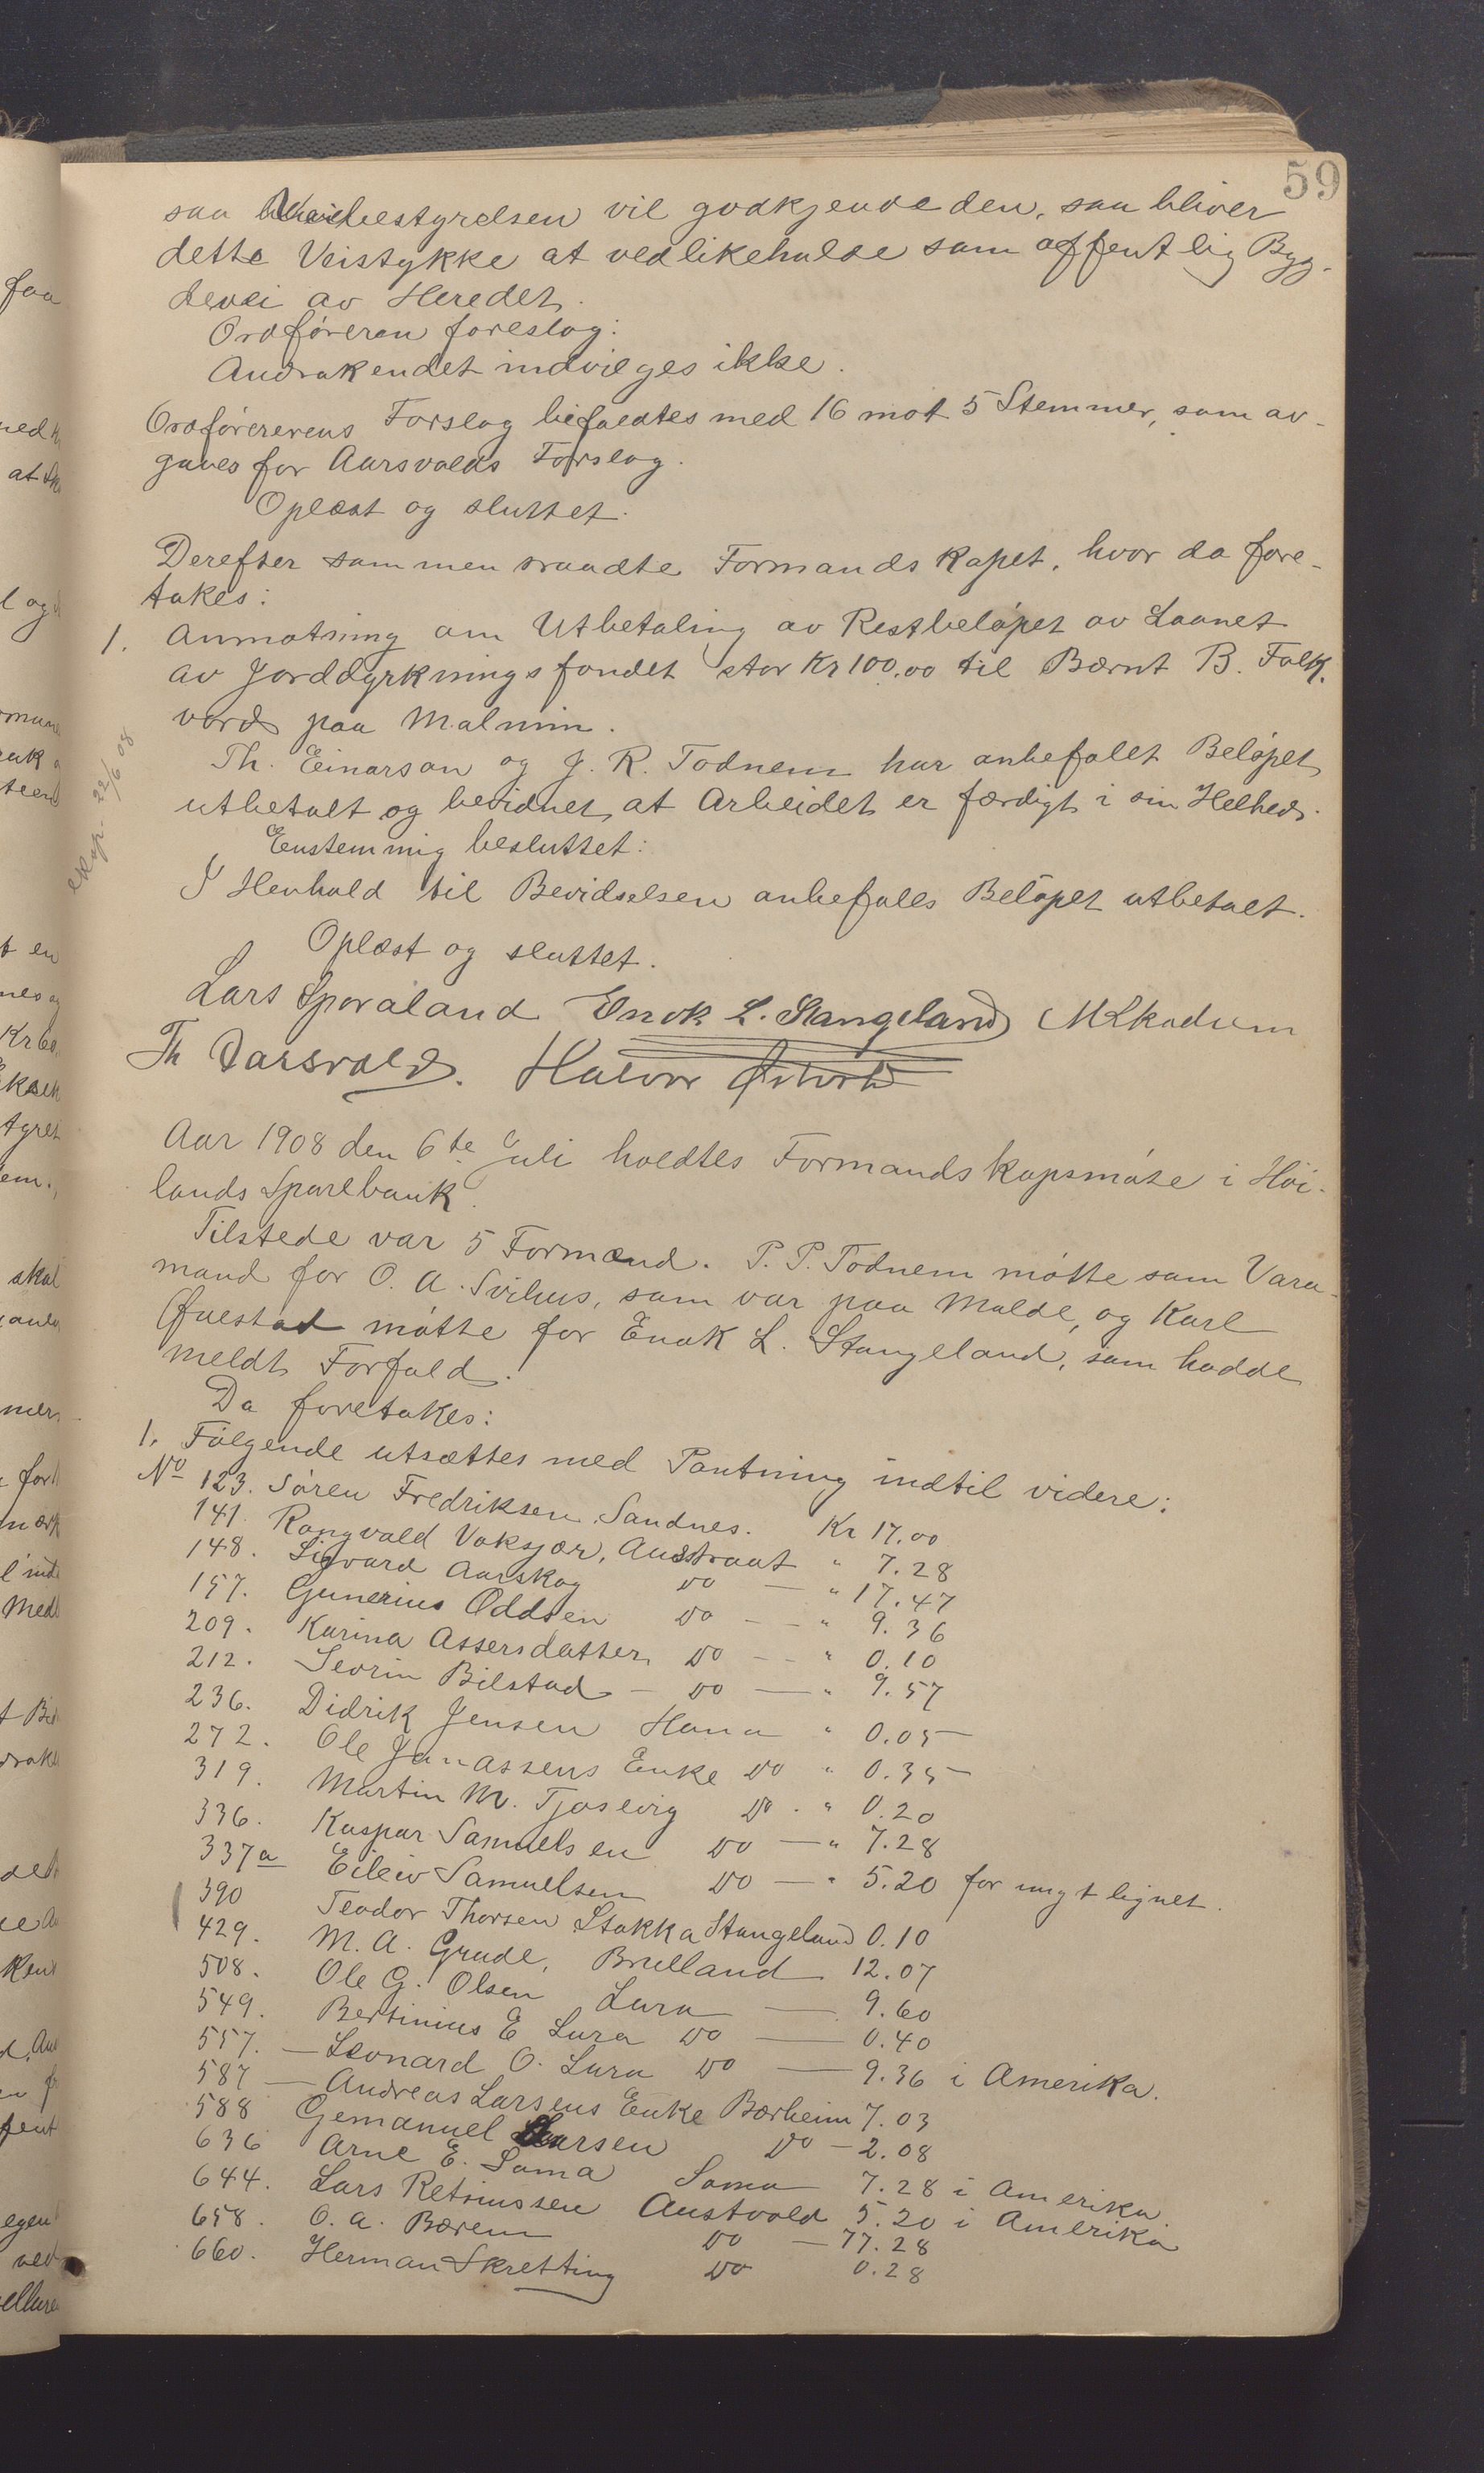 59
saa Veibestyrelsen vil godkjende den, saa bliver
dette Veistykke at vedlikeholde som offentlig Byg-
devei av Heredet.
Ordføreren foreslog:
Andrakendet indvilges ikke.
Ordførerens Forslag bifaldtes med 16 mot 5 Stemmer, som av-
gaves for Aarsvolds Forslag.
Oplæst og sluttet.
Derefter sammen traadte Formandskapet, hvor da fore-
takes:
1. Anmotning om Utbetaling av Restbeløpet av Laanet
av Jorddyrkningsfondet stor Kr 100.00 til Bernt B. Folk-
vord paa Malmin.
Th. Einarson og J. R. Todnem har anbefalet Beløpet
utbetalt og bevidnet, at Arbeidet er færdigt i sin Helhed.
Ekspr. 22/6 08
Eenstemmig besluttet:
I Henhold til Bevidselsen anbefales Beløpet utbetalt.
Oplæst og sluttet.
Lars Sporaland Enok L. Stangeland M Skadsem
Th Aarsvold. Halvor
Aar 1908 den 6te Juli holdtes Formandskapsmøte i Høi-
lands Sparebank.
Tilstede var 5 Formænd. P. P. Todnem møtte som Vara-
mand for O. A. Svihus, som var paa Molde, og Karl
Øvestad møtte for Enok L. Stangeland, som hadde
meldt Forfald.
Da foretakes:
1. Følgende utsættes med Pantning indtil videre:
No 123. Søren Fredriksen Sandnes. Kr 17.00
141. Rangvald Vaksjær, Austraat " 7.28
148. Sigvard Aarskog do — " 17.47
157. Gunerius Oddsen do — " 9.36
209. Karina Assersdatter do — " 0.10
212. Sevrin Bilstad — do — " 9.57
236. Didrik Jensen Hana " 0.05
272. Ole Janassens Enke do " 0.35
319. Martin M. Tjosevig do . " 0.20
336. Kaspar Samuelsen do — " 7.28
337a Eileiv Samuelsen do — " 5.20 for meget lignet.
390 Teodor Thorsen Stokka Stangeland 0.10
429. M. A. Grude, Brulland 12.07
508. Ole G. Olsen Lura — 9.60
549. Bertinius E Lura do — 0.40
557. — Leonard O. Lura do — 9.36 i Amerika.
587 — Andreas Larsens Enke Bærheim 7.03
588 Gemanuel Larsen do — 2.08
636 Arne E. Soma Soma 7.28 i Amerika.
644. Lars Retriussen Austvold 5.20 i Amerika
658. O. A. Bærem do — 77.28
660. Herman Skretting do 0.28